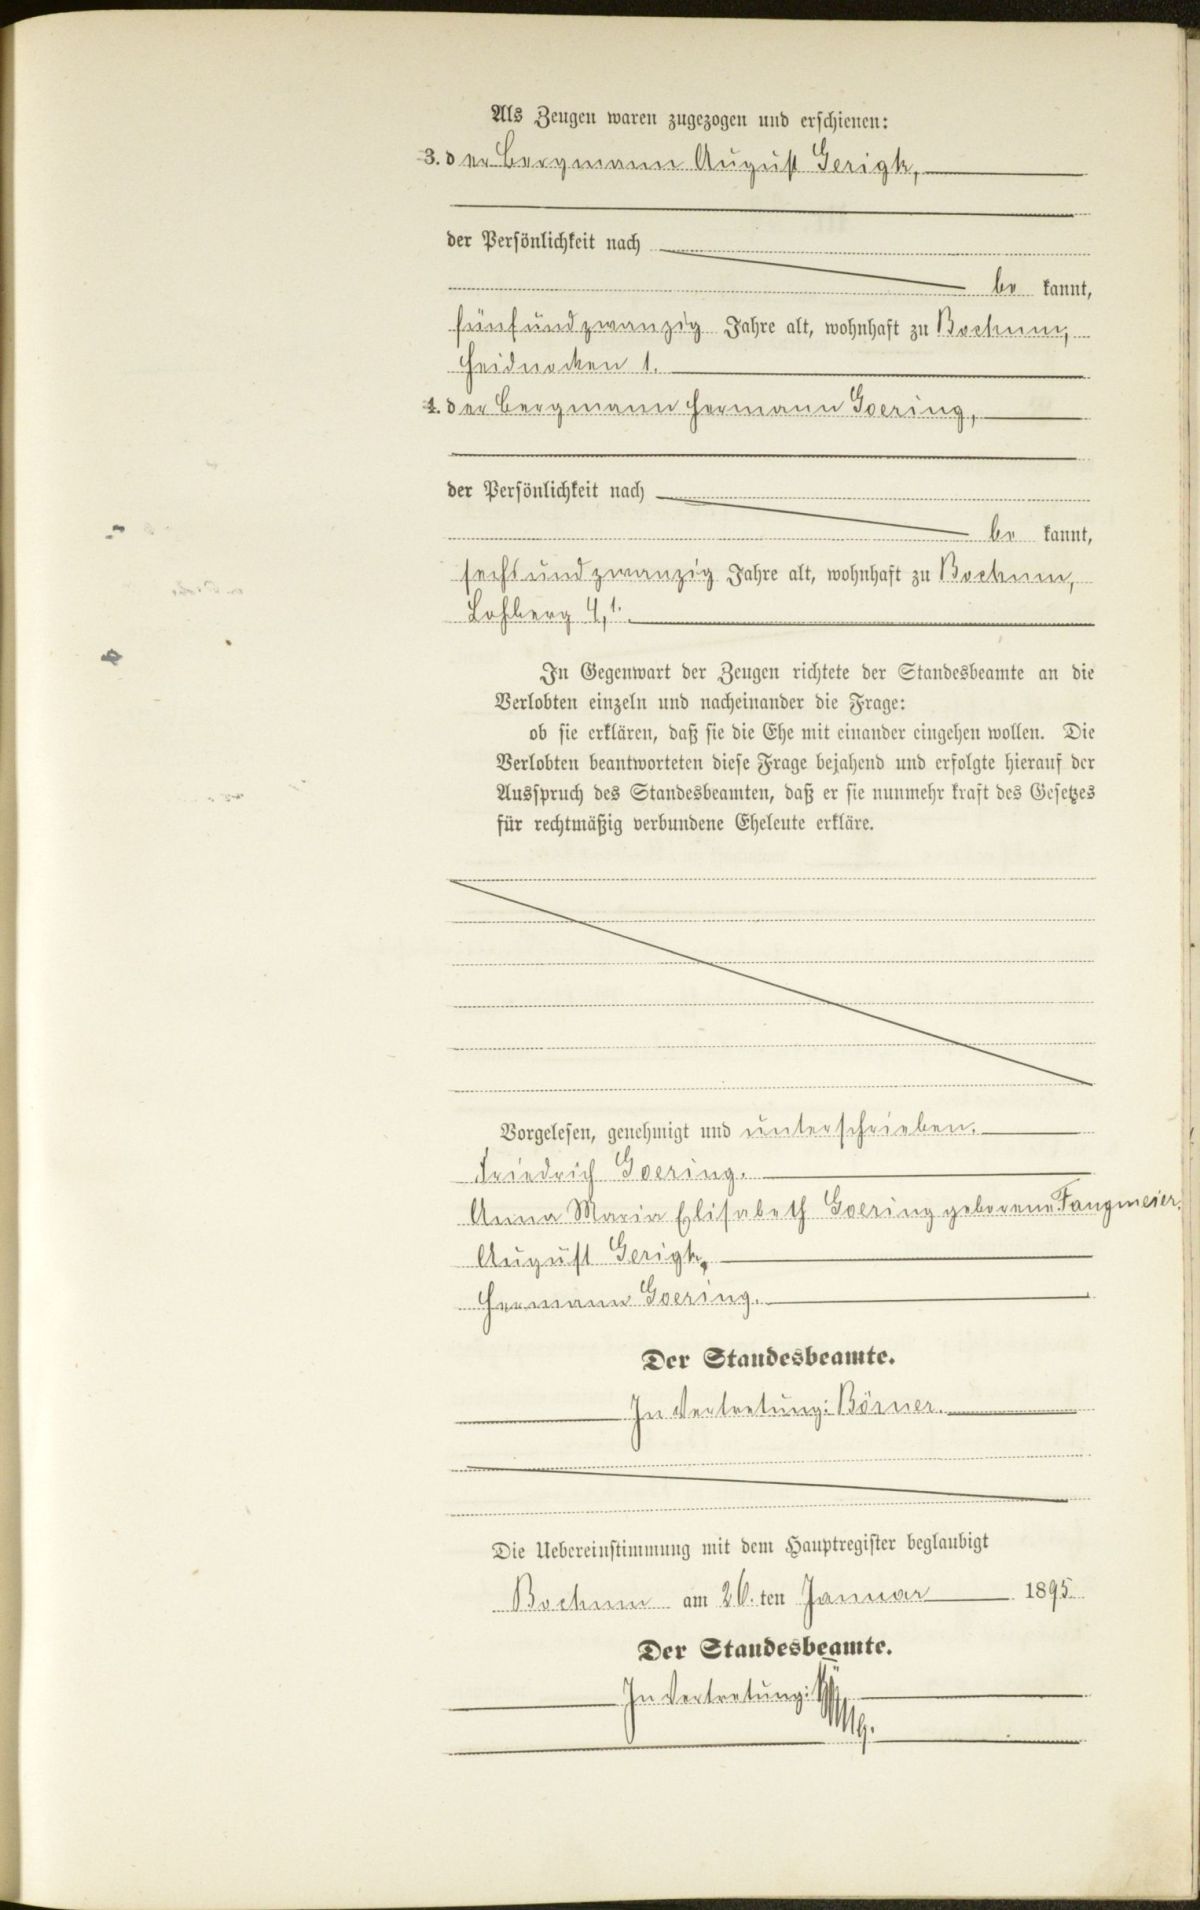 Als Zeugen waren zugezogen und erschienen:
3. der Bergmann August Gerigk,
der Persönlichkeit nach
be kannt,
fünfundzwanzig Jahre alt, wohnhaft zu Bochum,
Heidnocken 1.
4. der Bergmann Hermann Goering,
der Persönlichkeit nach
be kannt,
sechsundzwanzig Jahre alt, wohnhaft zu Bochum,
Lohberg 4,1.
In Gegenwart der Zeugen richtete der Standesbeamte an die
Verlobten einzeln und nacheinander die Frage:
ob sie erklären, daß sie die Ehe mit einander eingehen wollen. Die
Verlobten beantworteten diese Frage bejahend und erfolgte hierauf der
Ausspruch des Standesbeamten, daß er sie nunmehr kraft des Gesetzes
für rechtmäßig verbundene Eheleute erkläre.
Vorgelesen, genehmigt und unterschrieben.
Friedrich Goering.
Anna Maria Elisabeth Goering geborene Fangmeier.
August Gerigk.
Hermann Goering.
Der Standesbeamte.
In Vertretung: Börner.
Die Uebereinstimmung mit dem Hauptregister beglaubigt
Bochum am 26.ten Januar 1895.
Der Standesbeamte.
In Vertretung: